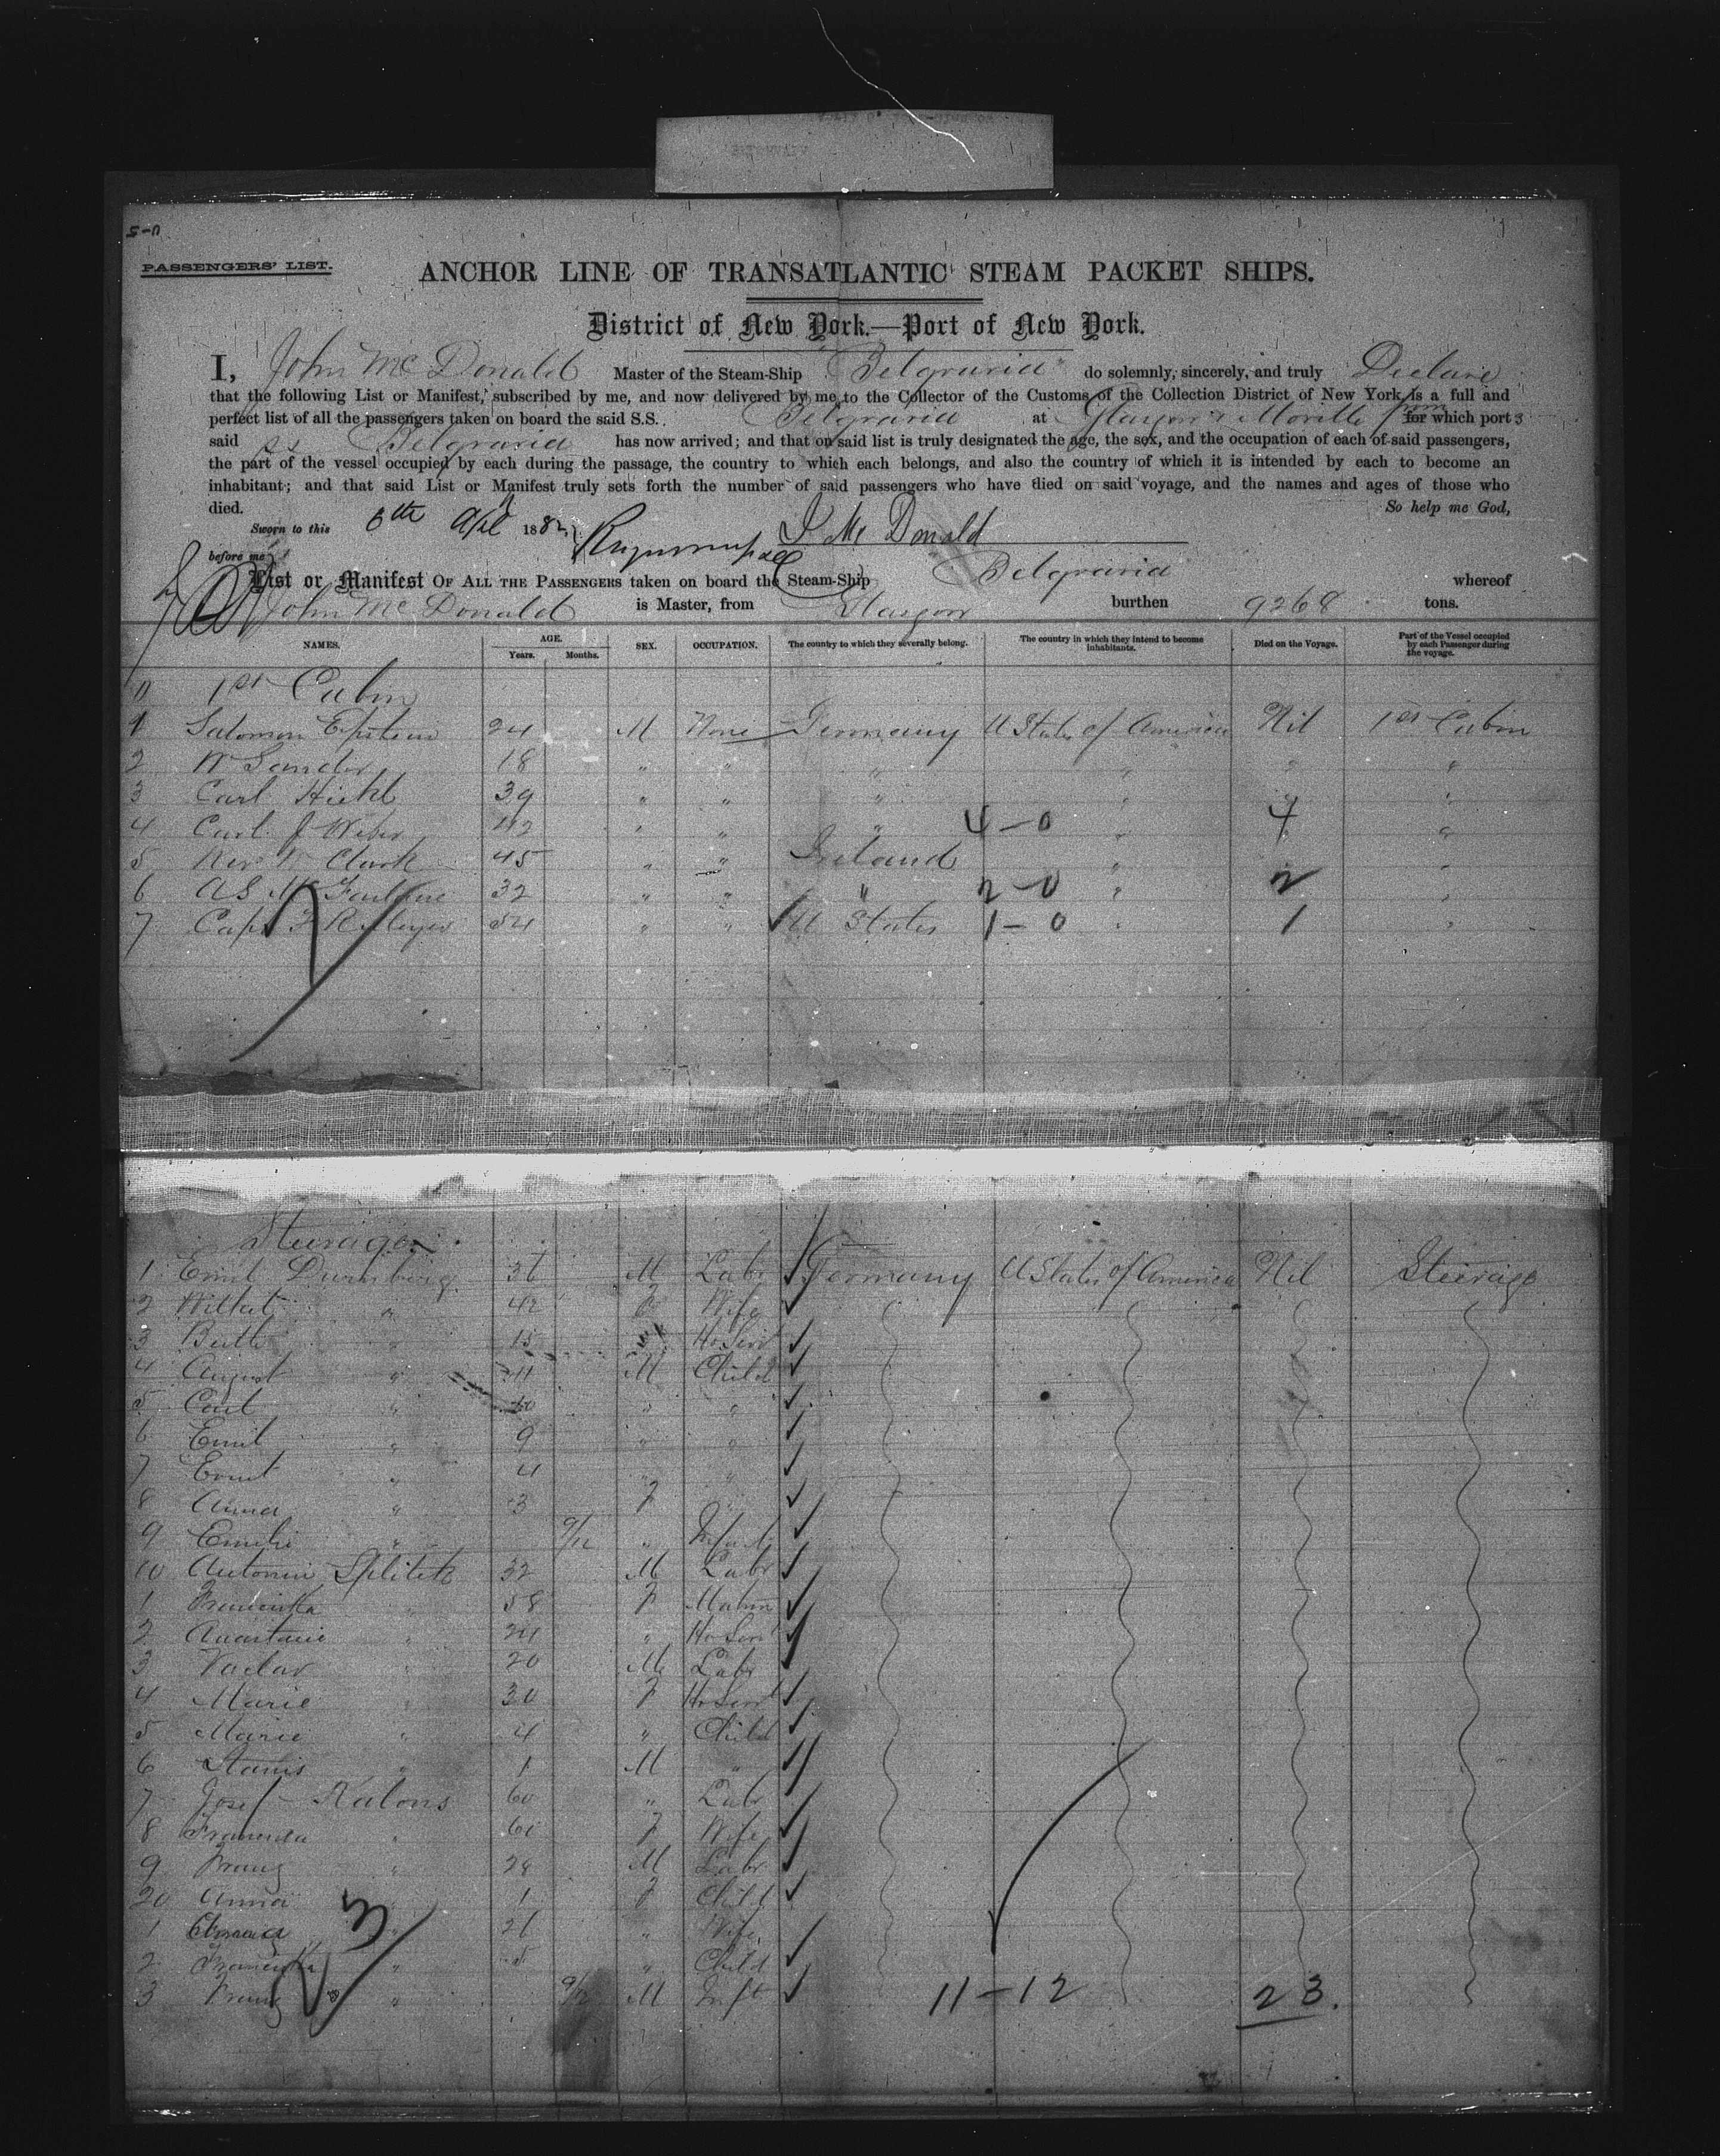 PASSENGERS' LIST.
ANCHOR LINE OF TRANSATLANTIC STEAM PACKET SHIPS.
District of New York.—Port of New York.
I, John McDonald Master of the Steam-Ship "Belgravia" do solemnly, sincerely, and truly Declare
that the following List or Manifest, subscribed by me, and now delivered by me to the Collector of the Customs of the Collection District of New York is a full and
perfect list of all the passengers taken on board the said S.S. Belgravia at Glasgow & Moville from for which port s
said ss Belgravia has now arrived; and that on said list is truly designated the age, the sex, and the occupation of each of said passengers,
the part of the vessel occupied by each during the passage, the country to which each belongs, and also the country of which it is intended by each to become an
inhabitant; and that said List or Manifest truly sets forth the number of said passengers who have died on said voyage, and the names and ages of those who
died. So help me God,
Sworn to this 6th Apl 1882 J Mc Donald
before me
List or Manifest OF ALL THE PASSENGERS taken on board the Steam-Ship Belgravia whereof
John McDonald is Master, from Glasgow burthen 9268 tons.
NAMES. AGE. Years. Months. SEX. OCCUPATION. The country to which they severally belong. The country in which they intend to become inhabitants. Died on the Voyage. Part of the Vessel occupied by each Passenger during the voyage.
1st Cabin
1 Salomon Epstein 24 M None Germany U States of America Nil 1st Cabin
2 W Sander 18 " " " " " "
3 Carl Hickl 39 " " " " " "
4 Carl J Weber 42 " " " 4-0 " 4 "
5 Rev W Clark 45 " " Ireland " "
6 A S 32 " " " 2-0 " 2 "
7 Capt 54 " " U States 1-0 " 1 "
Steerage
1 Ernst 36 M Labr Germany U States of America Nil Steerage
2 " 42 F Wife
3 " 15 Ho Servt
4 August " 11 M Child
5 Carl " 10 " "
6 Emil " 9 " "
7 Ernst " 4 " "
8 Anna " 3 F "
9 Emilie " 9/12 " Infant
10 Antonin Splitek 32 M Labr
1 " 58 F Matron
2 Anastasie " 24 " Ho Servt
3 Vaclav " 20 M Labr
4 Marie " 30 F Ho Servt
5 Marie " 4 " Child
6 " 1 M "
7 Josef Kalous 60 " Labr
8 " 61 F Wife
9 Franz " 28 M Labr
20 Anna " 1 F Child
1 " 26 " Wife
2 " 5 " Child
3 Franz " 9/12 M Inft 11-12 23.